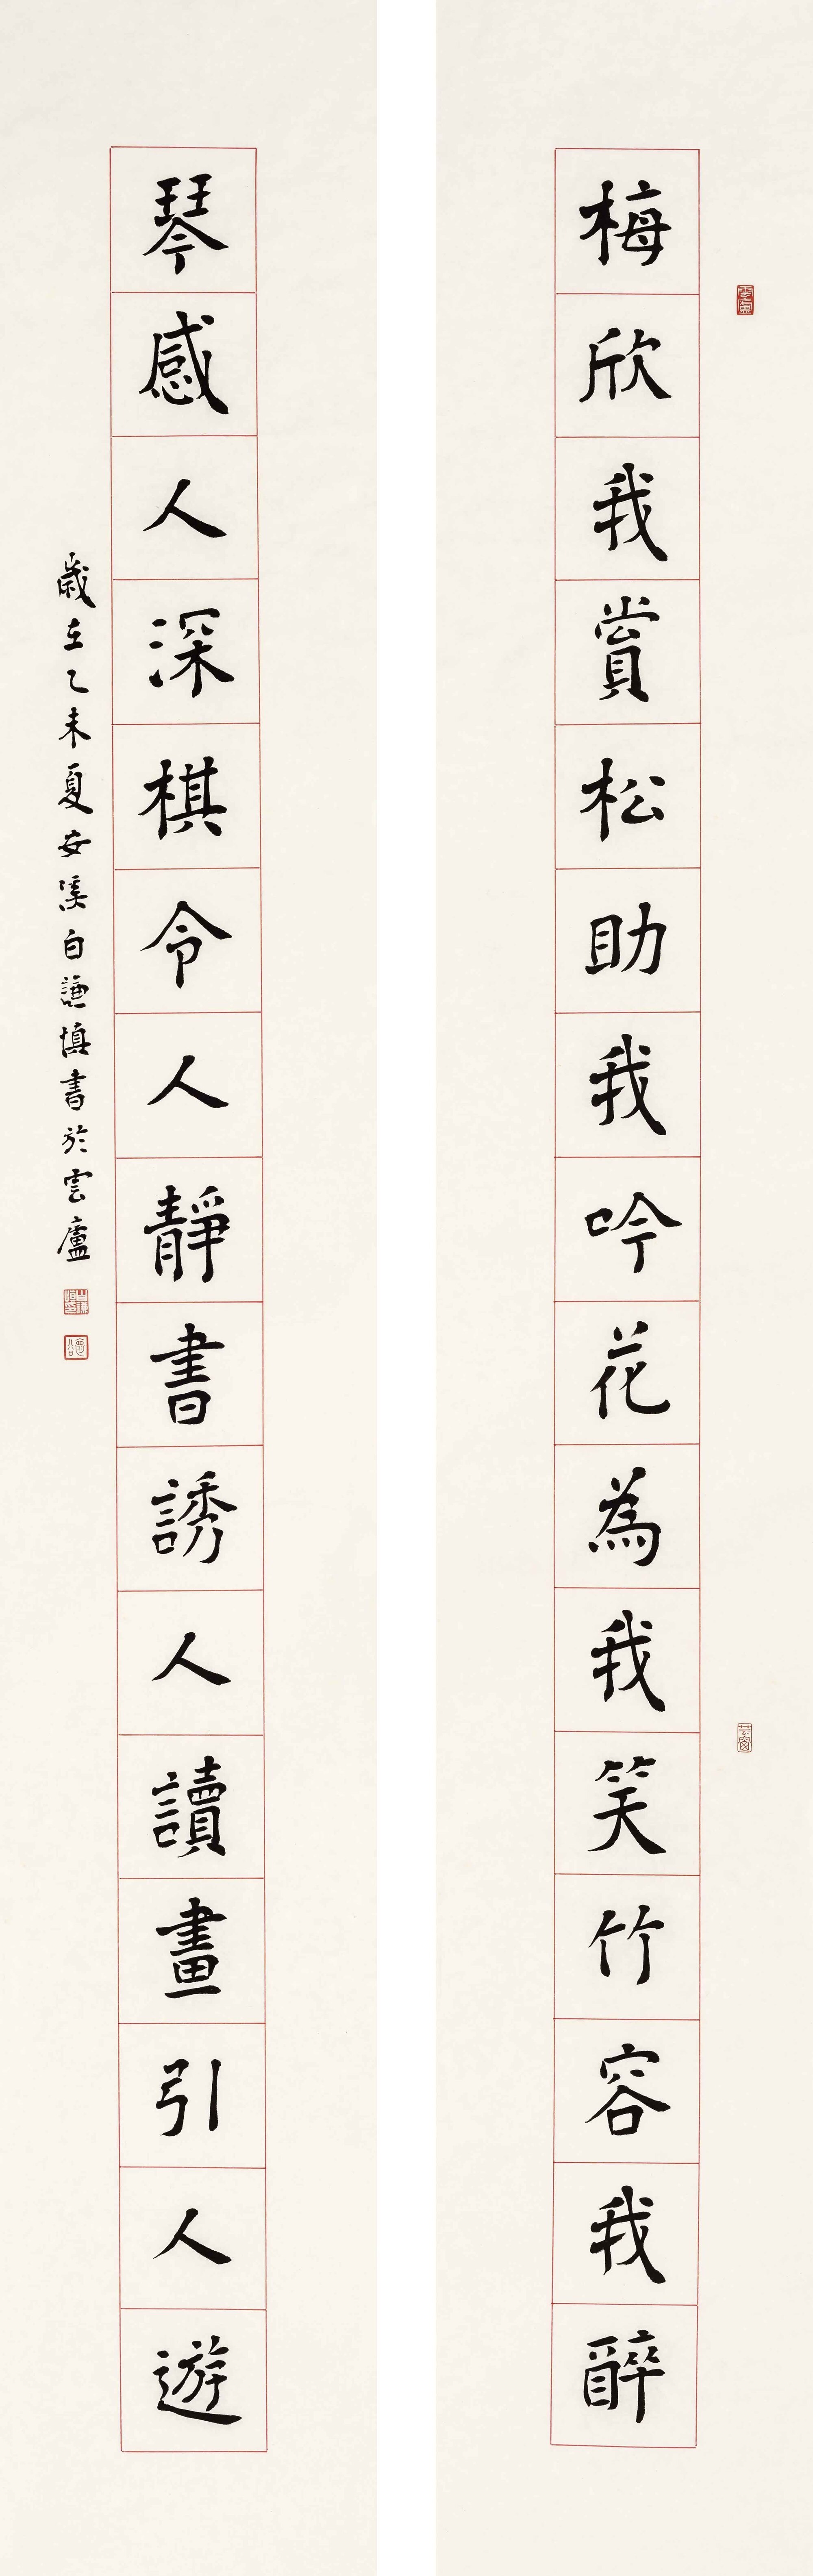 梅欣我賞松助我吟花為我笑竹容我醉
琴感人深棋令人靜書誘人讀畫引人遊
歲在乙未夏安溪白謙慎書於雲廬